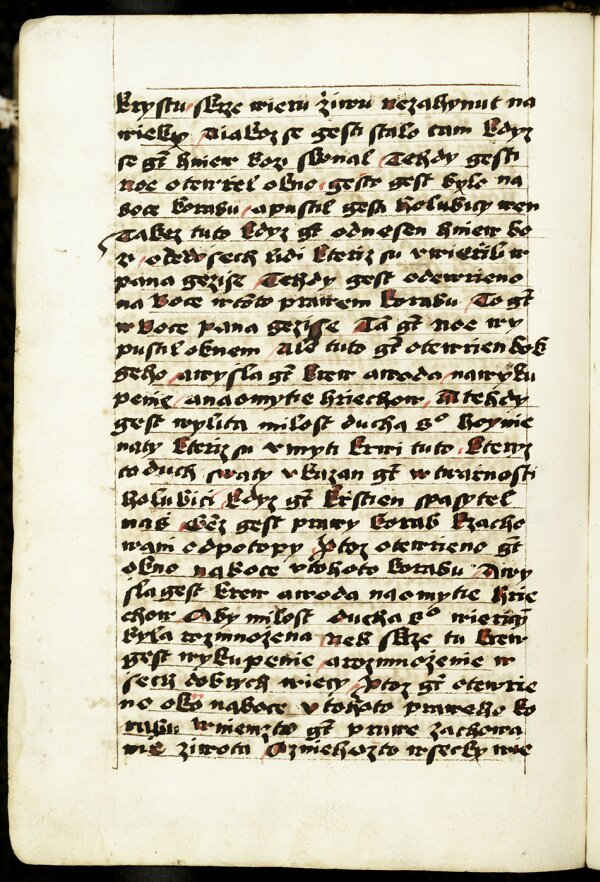 krystu skrze wieru ziwu nezahynut na
wieky Aiakoz se gest stalo tam kdyz
se gt hniew bozi skonal Tehdy gest
noe otewrel okno gesto gest bylo na
boce korabu a pustil gest holubicy wen
Takez tuto kdyz gt odnesen hniew bo
zi ode wsech lidi kteriz su uwierili w
pana gezisse Tehdy gest odewrieno
na boce w tomto prawem korabu To gt
w boce pana gezisse Tam gt noe wy
pustil oknem Ale tuto gt otewrien bok
geho a wysla gt krew a woda na wyku
penie a na omytie hriechow A tehdy
gest wylita milost ducha so hoynie
na ty kteriz su umyti krwi tuto kteryz
to duch swaty ukazan gt w twarnosti
holubici kdyz gt krstien spasytel
nas Genz gest prawy korab k zacho
wani od potopy Protoz otewrieno gt
okno na boce u tohoto korabu A wy
sla gest krew a woda na omytie hrie
chow Aby milost ducha so wiericim
byla rozmnozena Neb skrze tu krew
gest wykupenie a rozmnozenie w
sech dobrych wiecy Protoz gt otewrie
no okno na boce u tohoto praweho ko
rabu w niemzto gt prawe zachowa
nie ziwota Z niehozto wsecky wie